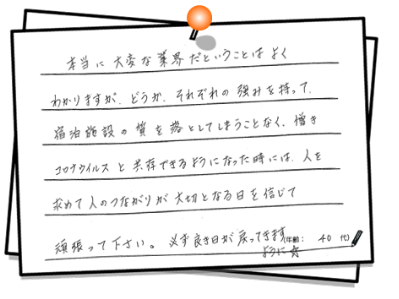 本当に大変な業界だということはよく
わかりますが、どうか、それぞれの強みを持って、
宿泊施設の質を落としてしまうことなく、憎き
コロナウイルスと共存できるようになった時には、人を
求めて人のつながりが大切となる日を信じて
頑張って下さい。必ず良き日が戻ってきます
ように☆
年齢： 40 代